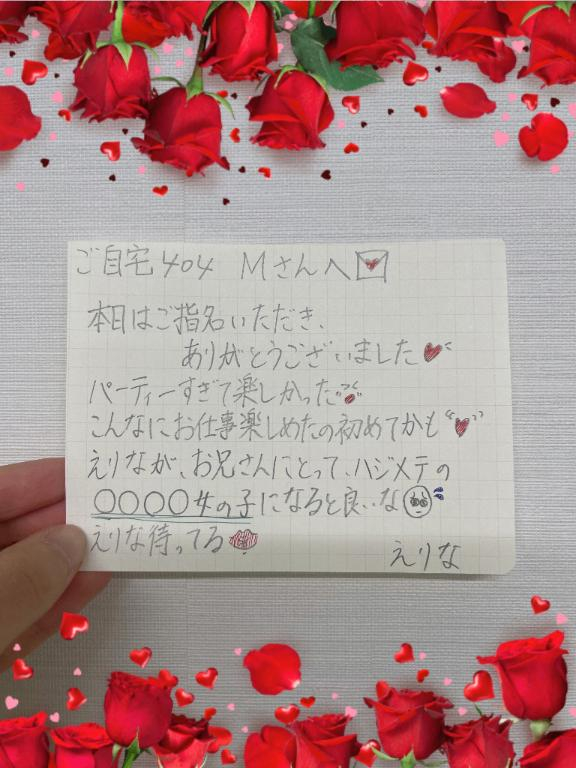 ご自宅404 Mさんへ
本日はご指名いただき、
ありがとうございました
パーティーすぎて楽しかった
こんなにお仕事楽しめたの初めてかも
えりなが、お兄さんにとって、ハジメテの
〇〇〇〇女の子になると良いな
えりな待ってる
えりな